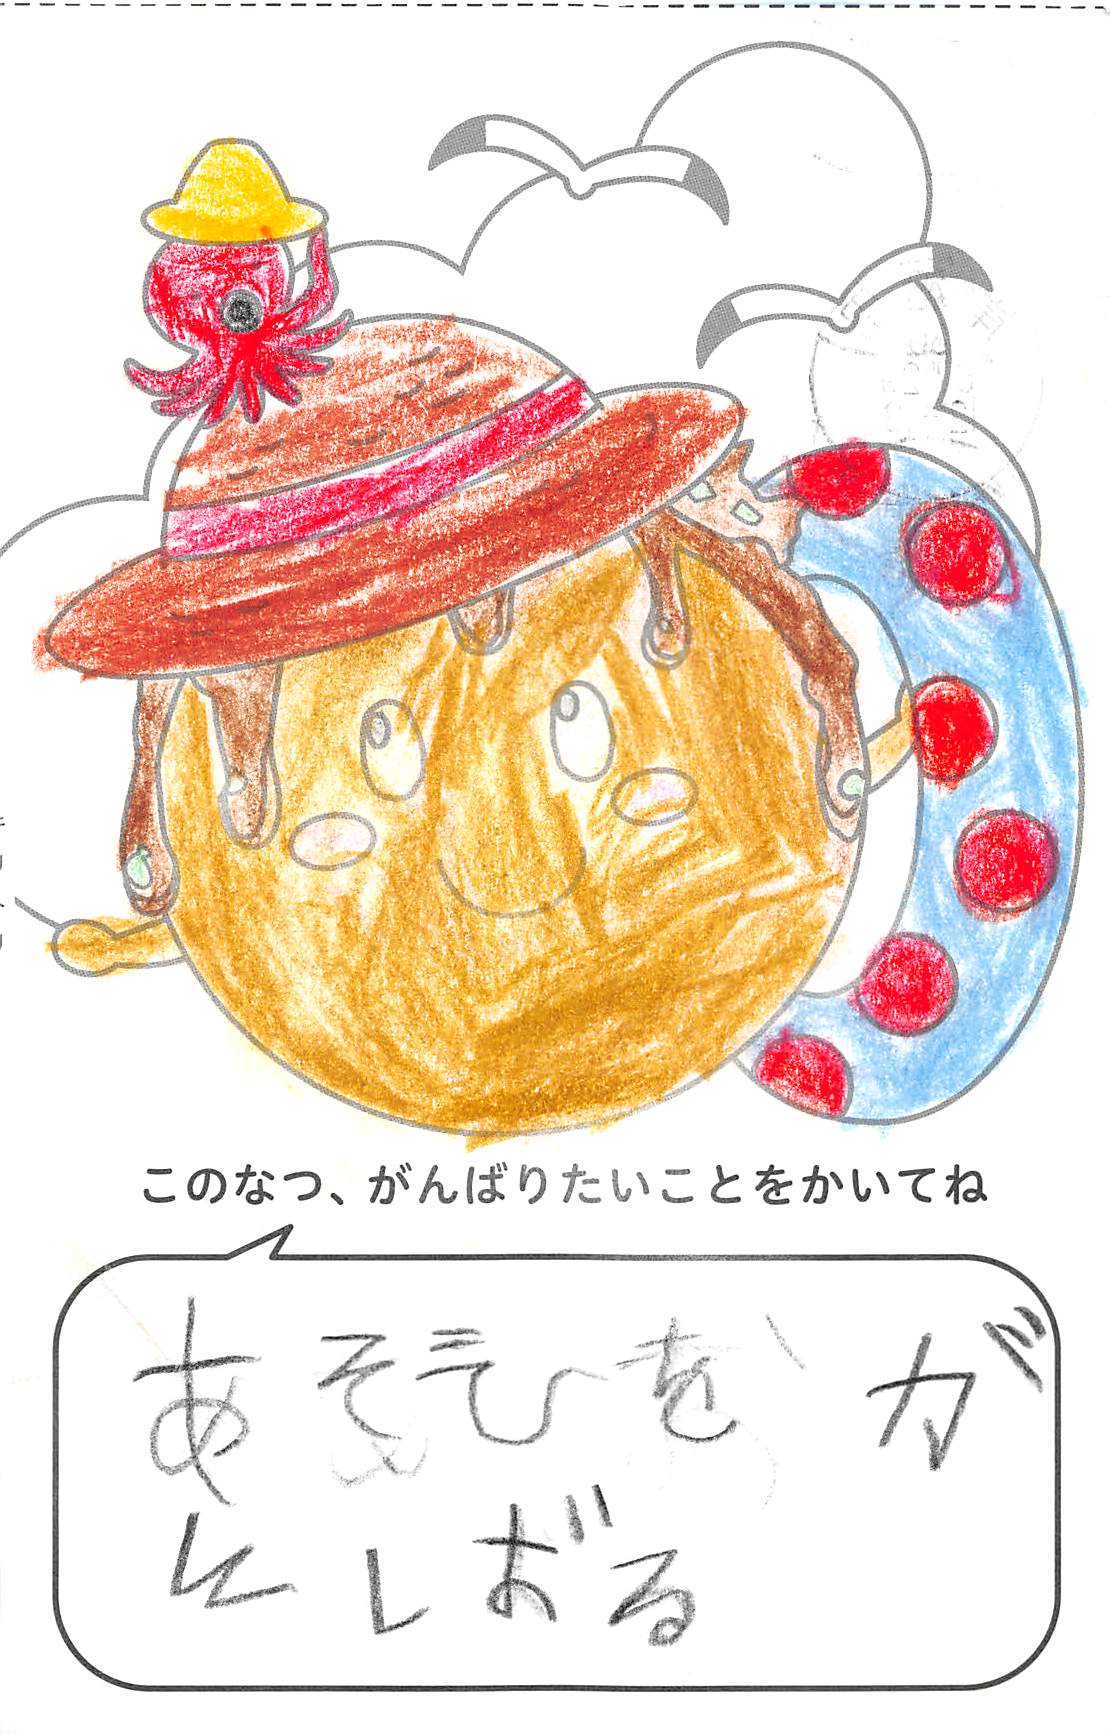 このなつ、がんばりたいことをかいてね
あそびを が
んばる